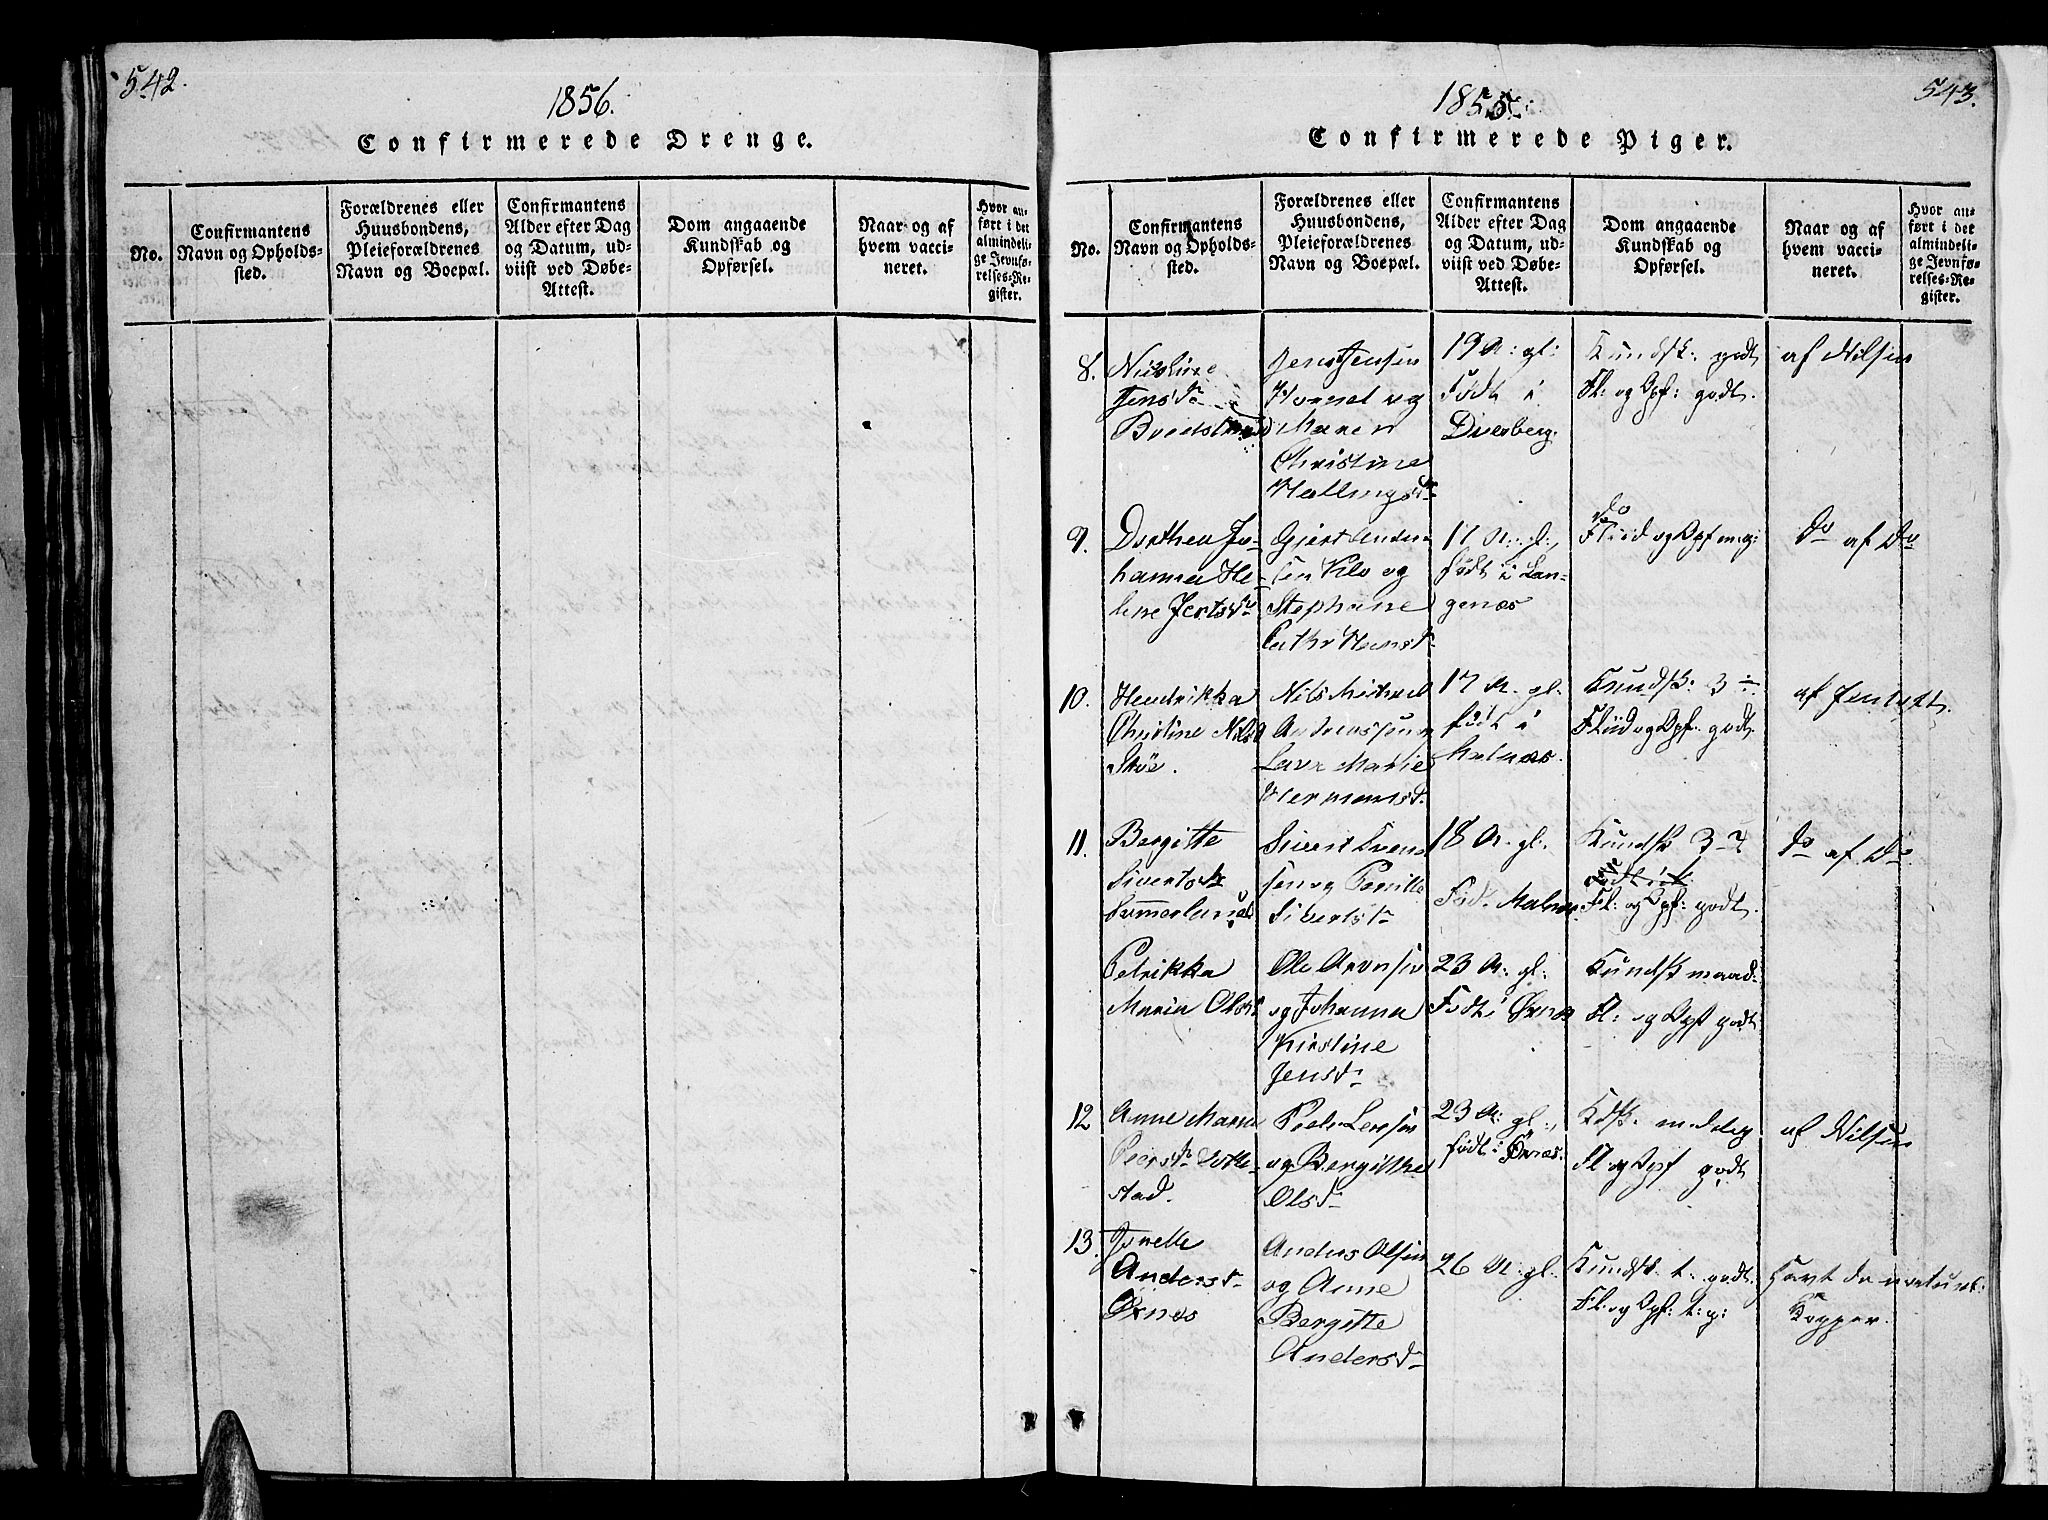 542.
1856.
Confirmerede Drenge.
No.
Confirmantens
Navn og Opholds-
sted.
Forældrenes eller
Huusbondens,
Pleieforældrenes
Navn og Boepæl.
Confirmantens
Alder efter Dag
og Datum, ud-
viist ved Døbe-
Attest.
Dom angaaende
Kundskab og
Opførsel.
Naar og af
hvem vacci-
neret.
Hvor an-
ført i det
almindeli-
ge Jevnfø-
relses-Re-
gister.
543.
1855.
Confirmerede Piger.
No.
Confirmantens
Navn og Opholds-
sted.
Forældrenes eller
Huusbondens,
Pleieforældrenes
Navn og Boepæl.
Confirmantens
Alder efter Dag
og Datum, ud-
viist ved Døbe-
Attest.
Dom angaaende
Kundskab og
Opførsel.
Naar og af
hvem vacci-
neret.
Hvor an-
ført i det
almindeli-
ge Jevnfø-
relses-Re-
gister.
8.
Nicoline
Jensdr
Jens Jensen
og
Maren
Christine
Hallingsdr
19 A: gl:
Født i
Dverberg.
Kundsk: godt
Fl: og Opf: godt.
af Nilsen
9.
Dorthea Jo-
hanna He-
line Jertsdr
Gjert Ander-
sen Klo og
Stephane
Cathr Hansdr
17 A: gl:,
født i Lan-
genæs
do
Fliid og Opf m: g:
Do af Do
10.
Hendrikka
Christine Nilsd
Sköe.
Nils Michael
Andreassen og
Lava Marie
Hermansdr.
17 A. gl.
født i
Malnæs.
Kundsk: 3 ÷.
Fliid og Opf. godt
af Jentoft.
11.
Bergitte
Sivertsdr
Sivert
sen og Pernille
Sivertsdr
18 A. gl.
Fød. Malnæs
Kundsk 3-4
Fl: og Opf: godt.
Do af Do
Petrikka
Maria Olsdr
Ole Aronsen
og Johanna
Kirstine
Jensdr
23 A: gl:
Født i Øxnæs
Kundsk maad:
Fl: og Opf godt
12
Anne Maria
Peersdr
stad.
Peder Larsen
og Bergithe
Olsdr
23 A: gl:,
født i Öxnæs.
Kdsk: maadelig
Fl og Opf godt
af Nilsen
13.
Jonette
Andersdr
Öxnæs
Anders Olsen
og Anne
Bergitte
Andersdr
26 A: gl:
Kundsk: t: godt
Fl: og Opf: t: g:
Havt de naturl:
Kopper.